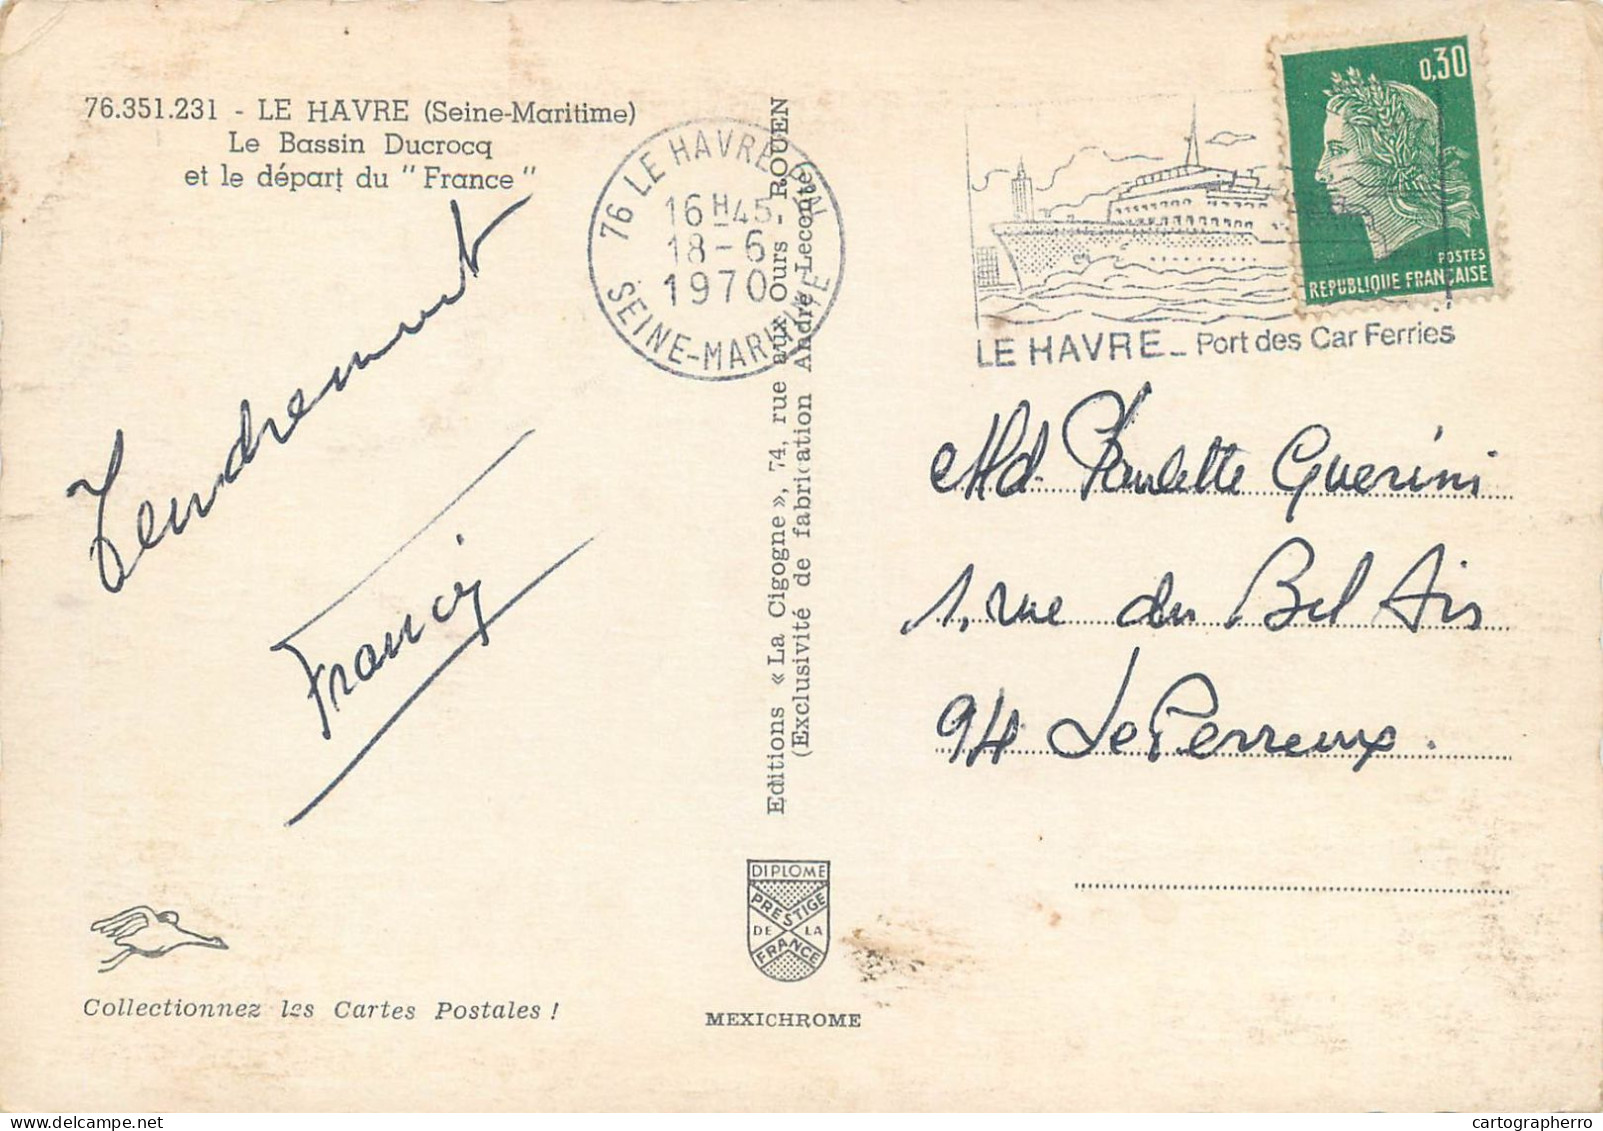 76.351.231 - LE HAVRE (Seine-Maritime)
Le Bassin Ducrocq
et le départ du "France"
Tendrement
Francis
Collectionnez les Cartes Postales !
76 LE HAVRE PAL
16H45
18-6
1970
SEINE-MARITIME
Editions « La Cigogne », 74, rue aux Ours, ROUEN
(Exclusivité de fabrication André Leconte)
DIPLOME
PRESTIGE
DE LA
FRANCE
MEXICHROME
0,30
POSTES
REPUBLIQUE FRANÇAISE
LE HAVRE_ Port des Car Ferries
Md Paulette Guerini
1, rue du Bel Air
94 Le Perreux.
cartographerro